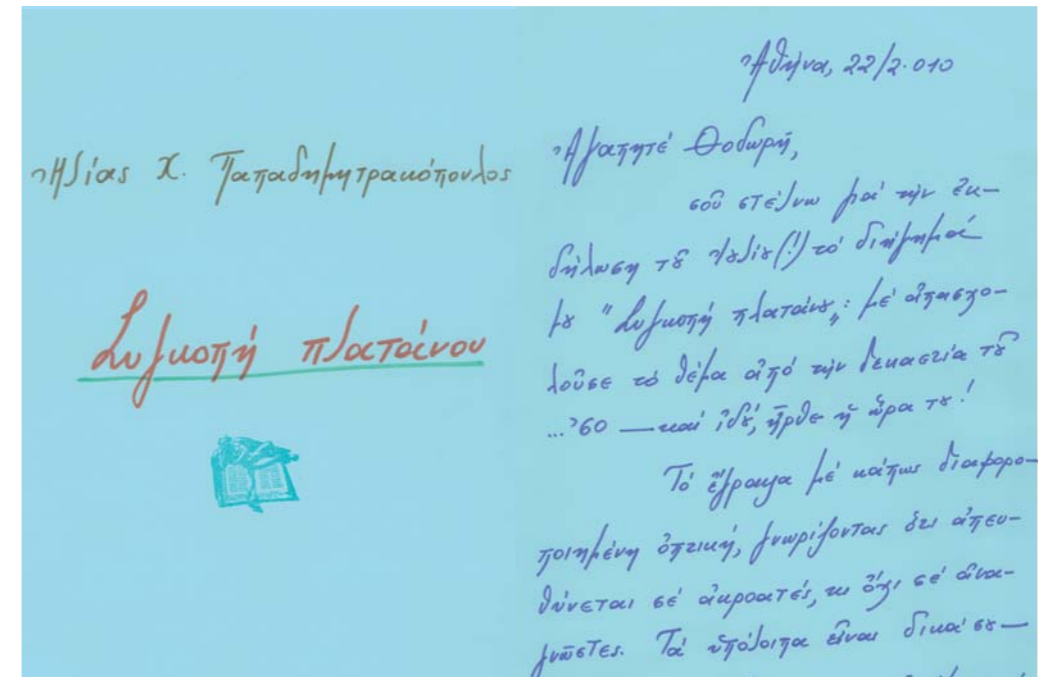 Ἠλίας Χ. Παπαδημητρακόπουλος
Συγκοπή πλατάνου
Ἀθήνα, 22/2.010
Ἀγαπητέ Θοδωρή,
σοῦ στέλνω γιά τήν ἐκ-
δήλωση τοῦ Ἰουλίου(!) τό διήγημά
μου "Συγκοπή πλατάνου": μέ ἀπασχο-
λοῦσε τό θέμα ἀπό τήν δεκαετία τοῦ
...'60 — καί ἰδού, ἦρθε ἡ ὥρα του!
Τό ἔγραψα μέ κάπως διαφορο-
ποιημένη ὀπτική, γνωρίζοντας ὅτι ἀπευ-
θύνεται σέ ἀκροατές, κι ὄχι σέ ἀνα-
γνῶστες. Τά ὑπόλοιπα εἶναι δικά σου —